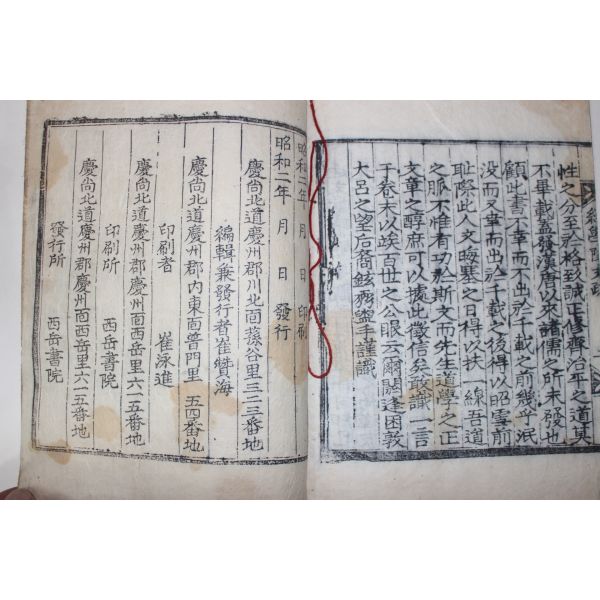 性之分至於格致誠正修齊治平之道莫
不畢載盖發漢唐以來諸儒之所未發也
顧此書不幸而不出於千載之前幾乎泯
没而又幸而出於千載之後得以昭雪前
耻際此人文晦塞之日得以扶一線吾道
之脈不惟有功於斯文而先生道學之正
文章之醇庶可以據此徵信矣敢識一言
于卷末以竢百世之公眼云爾閼逢困敦
大呂之望后裔鉉弼盥手謹識
昭和二年 月 日 印刷
昭和二年 月 日 發行
慶尚北道慶州郡川北面蓀谷里三二三番地
編輯兼發行者 崔 海
慶尚北道慶州郡内東面普門里 五四番地
印刷者 崔泳進
慶尚北道慶州郡慶州面西岳里六一五番地
印刷所 西岳書院
慶尚北道慶州郡慶州面西岳里六一五番地
發行所 西岳書院